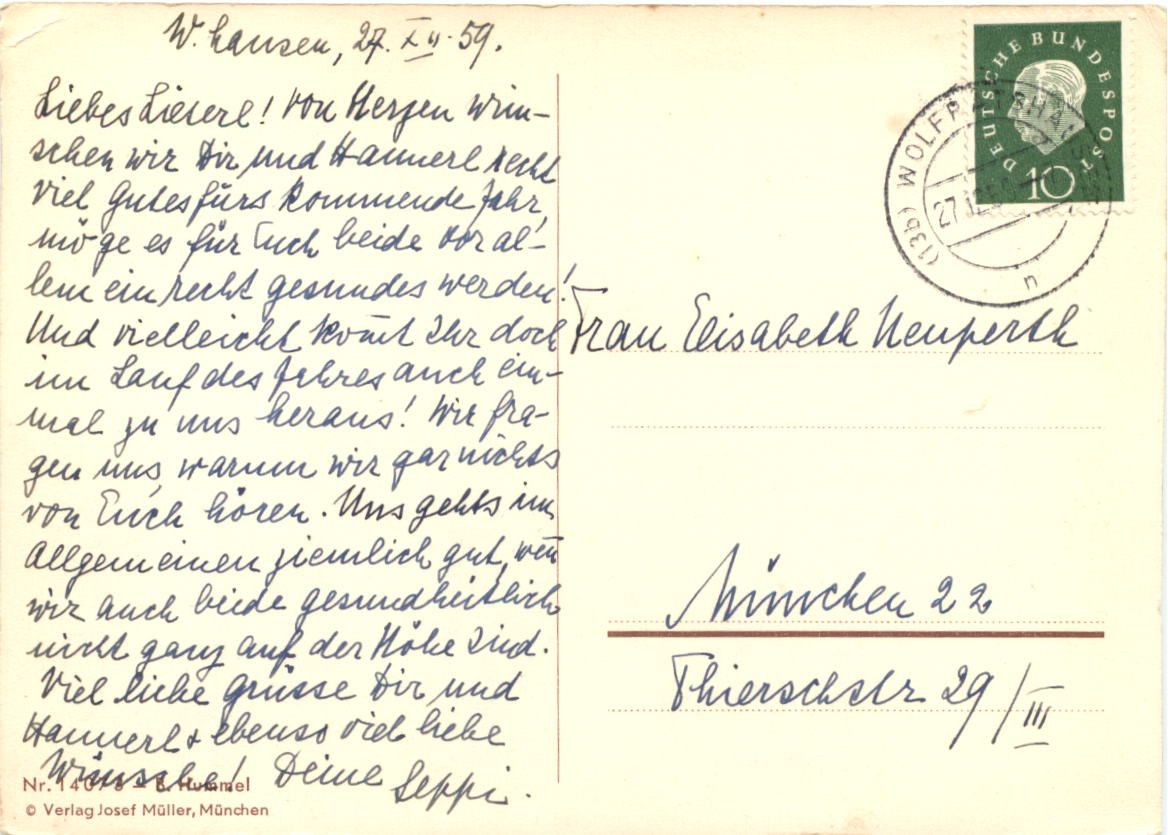 W.hausen, 27. XII. 59.
Liebes Lieserl! Von Herzen wün-
schen wir Dir und Hannerl recht
viel Gutes fürs kommende Jahr,
möge es für Euch beide vor al-
lem ein recht gesundes werden!
Und vielleicht kom̄t Ihr doch
im Lauf des Jahres auch ein-
mal zu uns heraus! Wir fra-
gen uns, warum wir gar nichts
von Euch hören. Uns gehts im
allgemeinen ziemlich gut, wen̄
wir auch beide gesundheitlich
nicht ganz auf der Höhe sind.
Viel liebe Grüsse Dir und
Hannerl & ebenso viel liebe
Wünsche! Deine Seppi.
Nr. 14078 – B. Hummel
© Verlag Josef Müller, München
DEUTSCHE BUNDESPOST
10
(13b) WOLFRATSHAUSEN
27.12.59
n
Frau Elisabeth Neuperth
München 22
Thierschstr 29/III